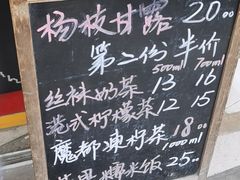 杨枝甘露 20.00
第二份半价
500ml 700ml
丝袜奶茶 13 16
港式柠檬茶 12 15
1000ml
魔都凍柠茶 18.00
糯米饭 25.00